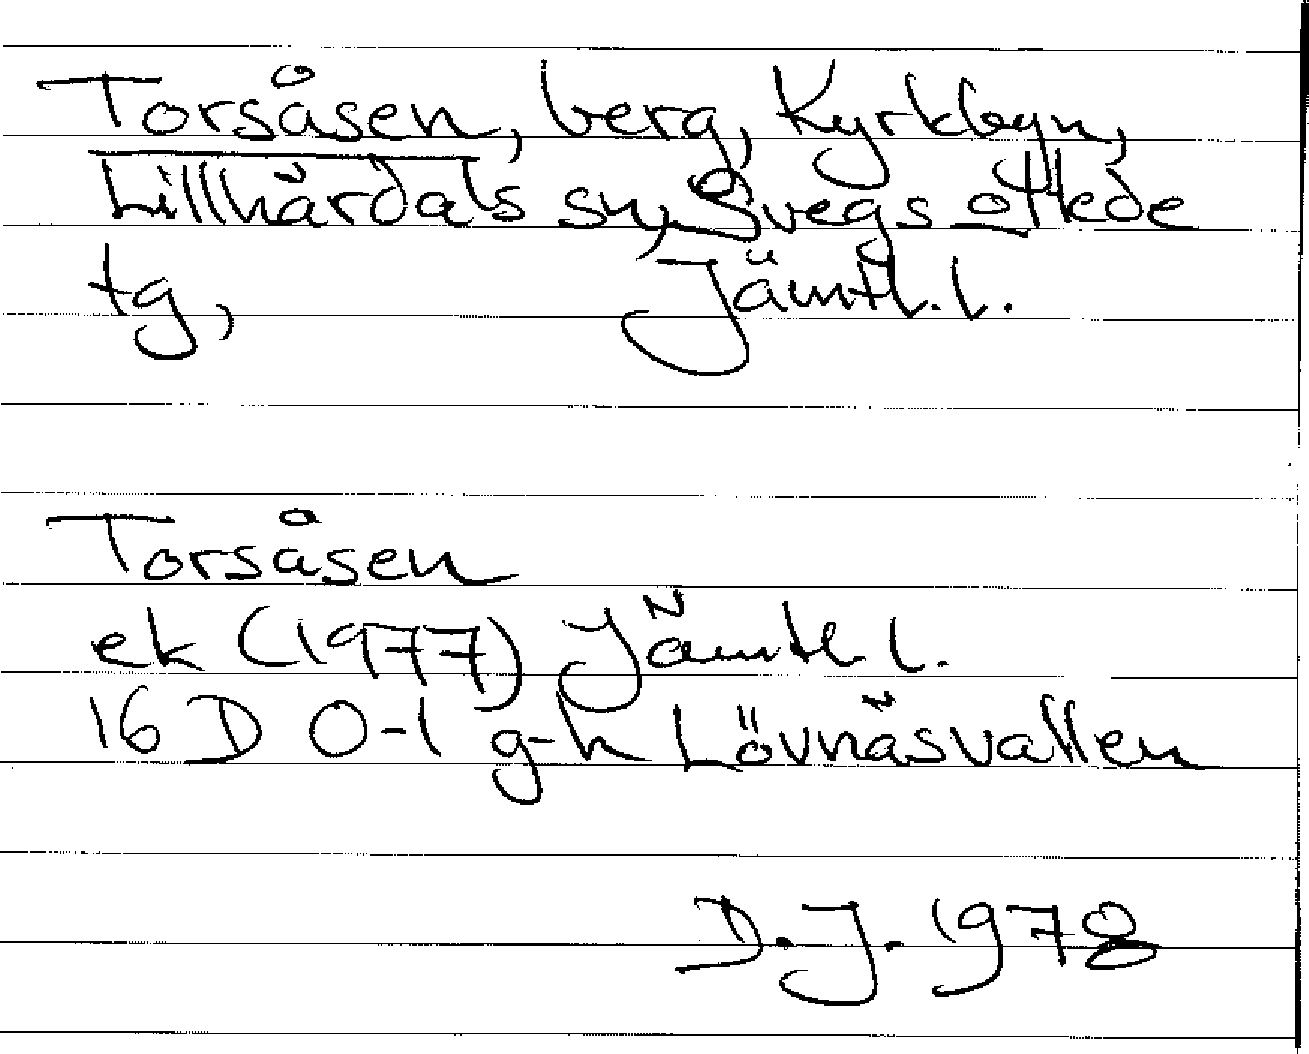 Torsåsen, berg, Kyrkbyn,
Lillhärdals sn, Svegs
tg, Jämtl. l.
Torsåsen
ek (1977) Jämtl. l.
16 D 0-1 g-h Lövnäsvallen
D.J. 1978